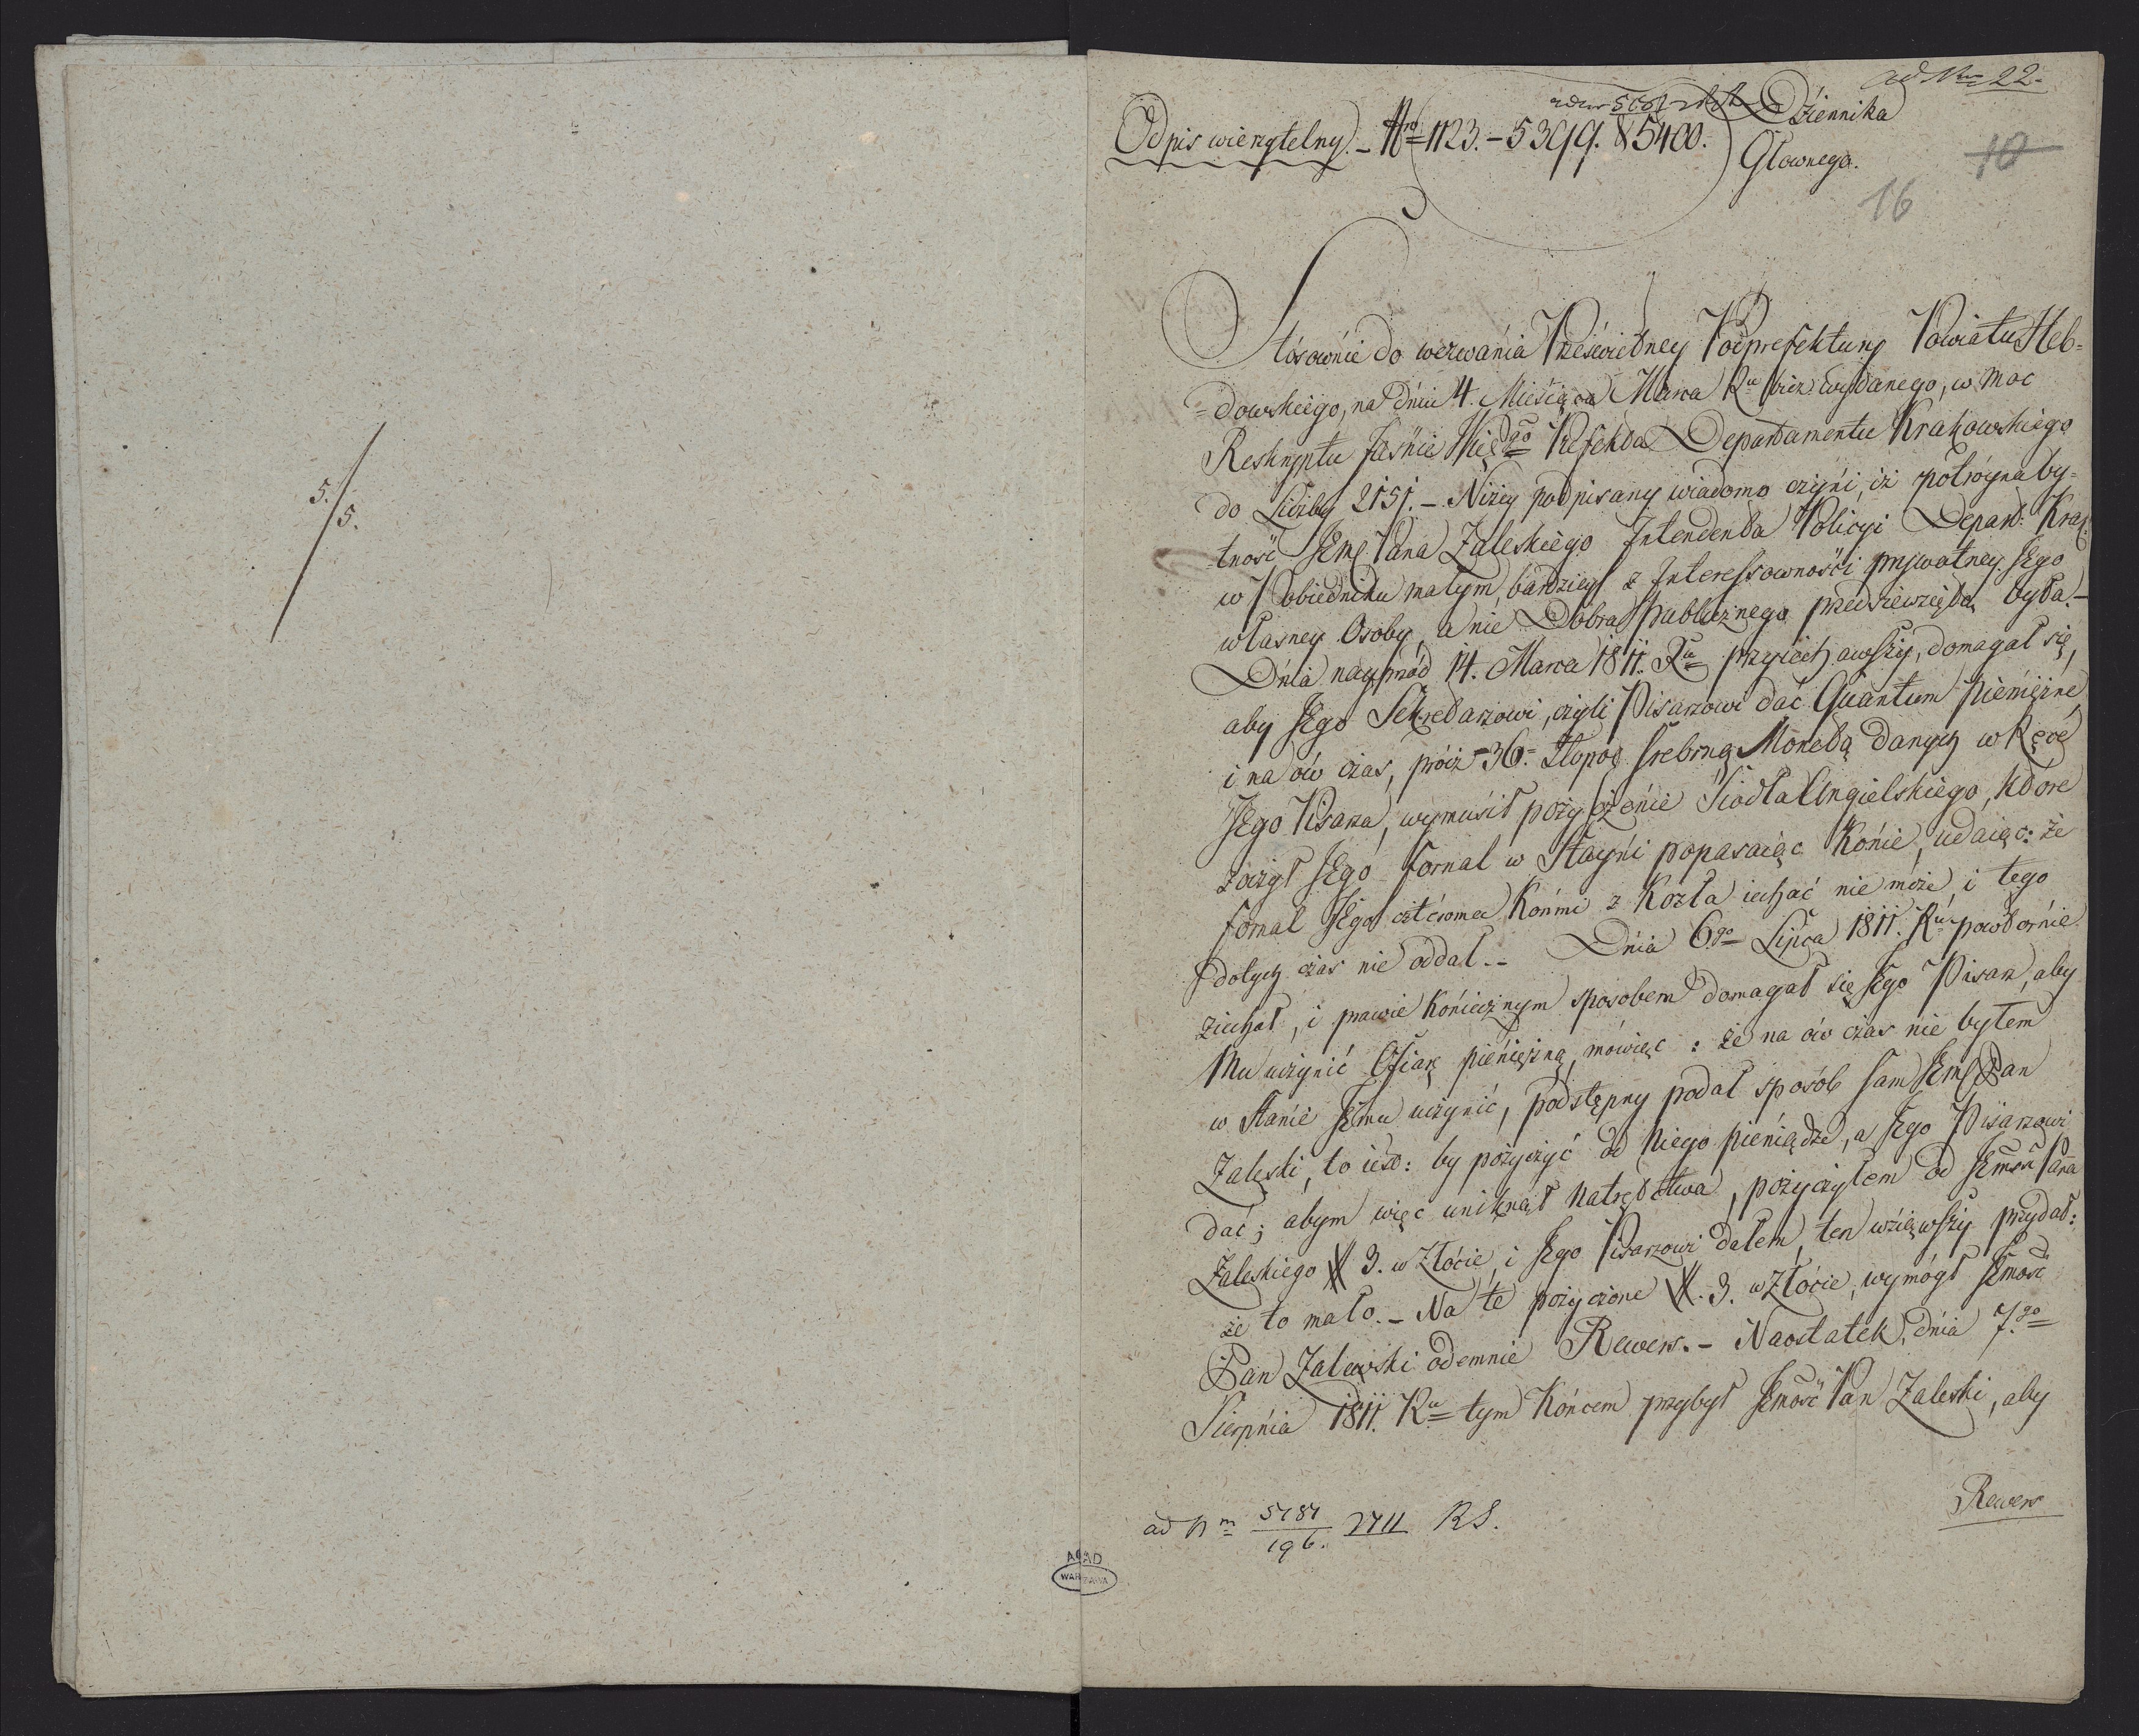 5./5.
ad Nrm 22.
Odpis wierzytelny. - Nro 1123. - 5399. & 5400. Dziennika
Głownego.
10
16
Stósownie do wezwánia Prześwietney Podprefektury Powiatu Heb=
=dowskiego, na dniu 4. Miesiąca Marca Ru bież: wydanego, w moc
Reskryptu Jaśnie Wielgo Prefekta Departamentu Krakowskiego
do Liczby 2151. - Niżey podpisany wiadomo czyni, iż potróyna by=
=tność JEmć Pana Zaleskiego Intendenta Policyi Depart: Krak:
w Pobiedniku małym, bardziey z Interessowności prywatney JEgo
własney Osoby, a nie Dobra publicznego przedsiewzięta była. -
Dnia nayprzód 14. Marca 1811. Ru przyiechawszy, domagał się,
aby JEgo Sekretarzowi, czyli Pisarzowi dać Quantum pieniężne
i na ów czas, prócz 36. Złopol srebrną Monetą danych w Ręce
JEgo Pisarza, wymusił pożyczenie Siodła Angielskiego, które
zoczył JEgo fornal w Stayni popasaiąc Konie, udaiąc: że
fornal JEgo cztéroma Końmi z Kozła iechać nie może, i tego
dotych czas nie oddał. - Dnia 6go Lipca 1811. Ru powtórnie
ziechał, i prawie koniecznym sposobem domagał się JEgo Pisarz, aby
Mu uczynić Ofiarę pieniężną, mówiąc: że na ów czas nie byłem
w Stanie JEmu uczynić, podstępny podał sposób sam JEmć Pan
Zaleski, to iest: by pożyczyć od Niego pieniądze, a JEgo Pisarzowi
dać; abym więc uniknął natręctwa, pożyczyłem od JEmści Pana
Zaleskiego # 3. w Złócie, i JEgo Pisarzowi dałem, ten wziąwszy przydał:
że to mało. - Na te pożyczone #. 3. w Złócie, wymógł JEmość
Pan Zalewski odemnie Rewers. - Naostatek, dnia 7go
Sierpnia 1811. Ru tym Końcem przybył JEmość Pan Zaleski, aby
Rewers
ad Nm 5787/196. 2711 RS.
AGAD
WARSZAWA